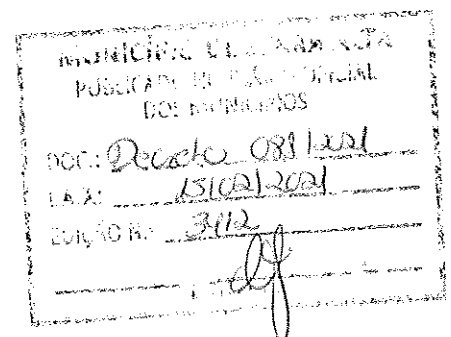 MUNICÍPIO DE
PUBLICADO NO DIÁRIO OFICIAL
DOS MUNICÍPIOS
DOC.: Decreto 089/2021
DATA: 15/02/2021
EDIÇÃO N.: 3412